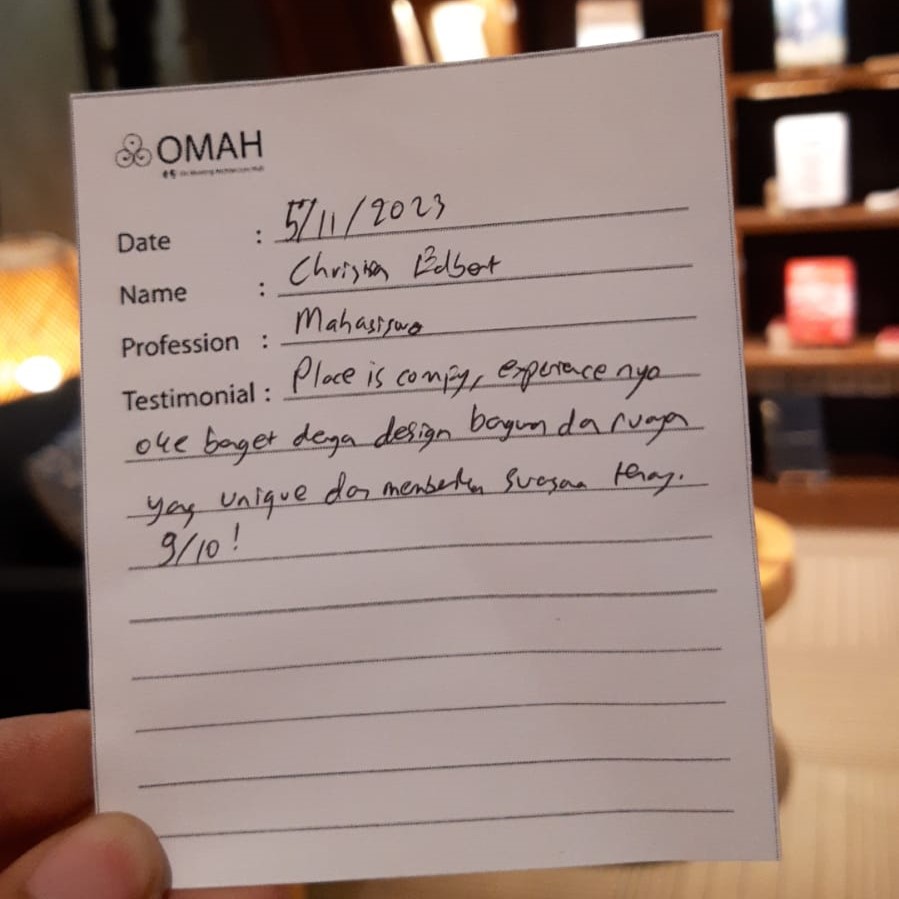 OMAH
Date : 5/11/2023
Name : Christian Edbert
Profession : Mahasiswa
Testimonial : Place is comfy, experience nya
oke banget dengan design bangunan dan ruangan
yang unique dan memberikan suasana tenang.
9/10!